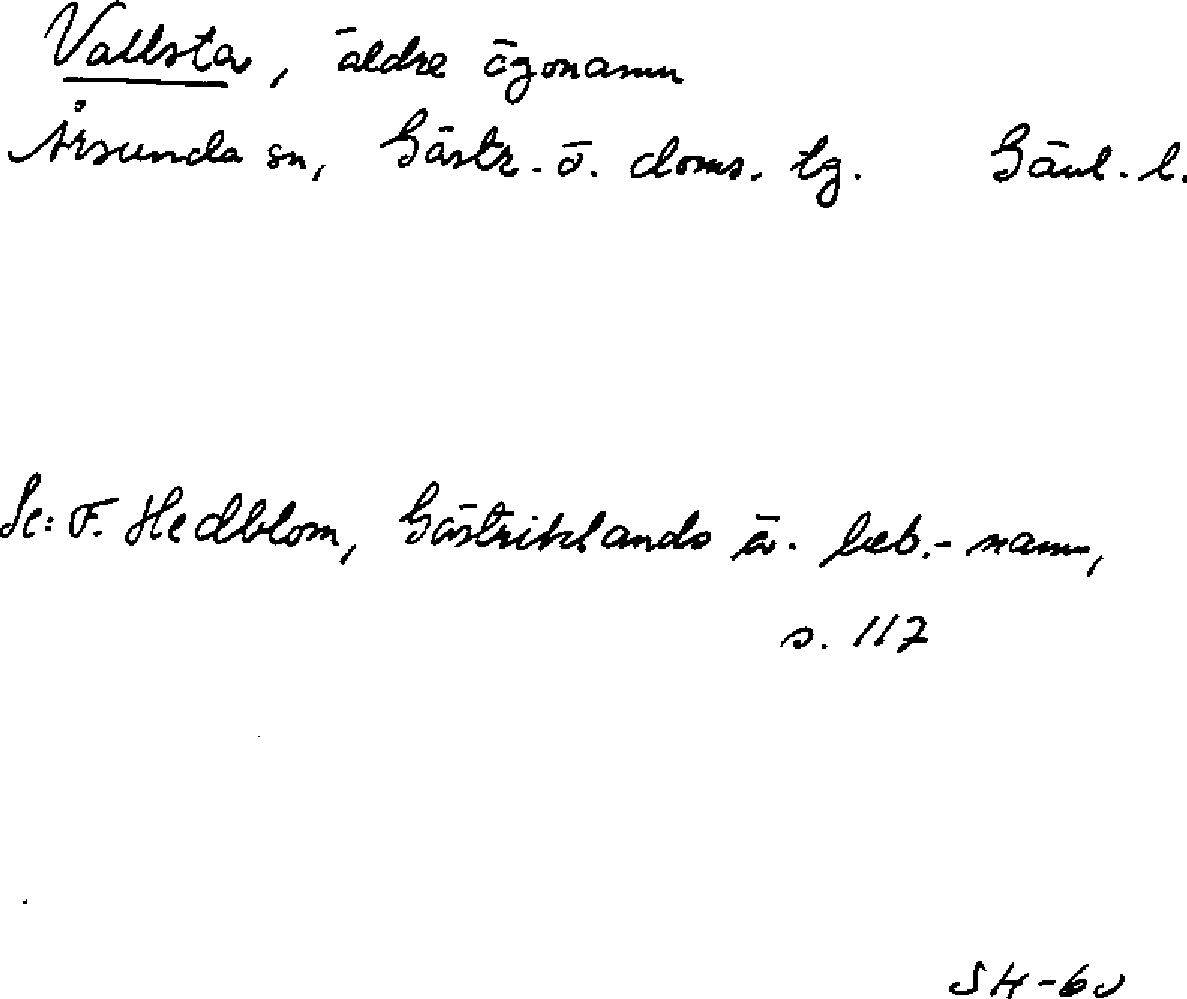 Vallsta, äldre ägonamn
Årsunda sn, Gästr. ö. doms. tg. Gävl. l.
Se: F. Hedblom, Gästriklands ä. beb.-namn,
s. 117
SH-60